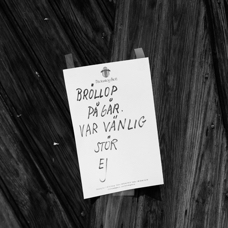 BRÖLLOP
PÅGÅR.
VAR VÄNLIG
STÖR
EJ